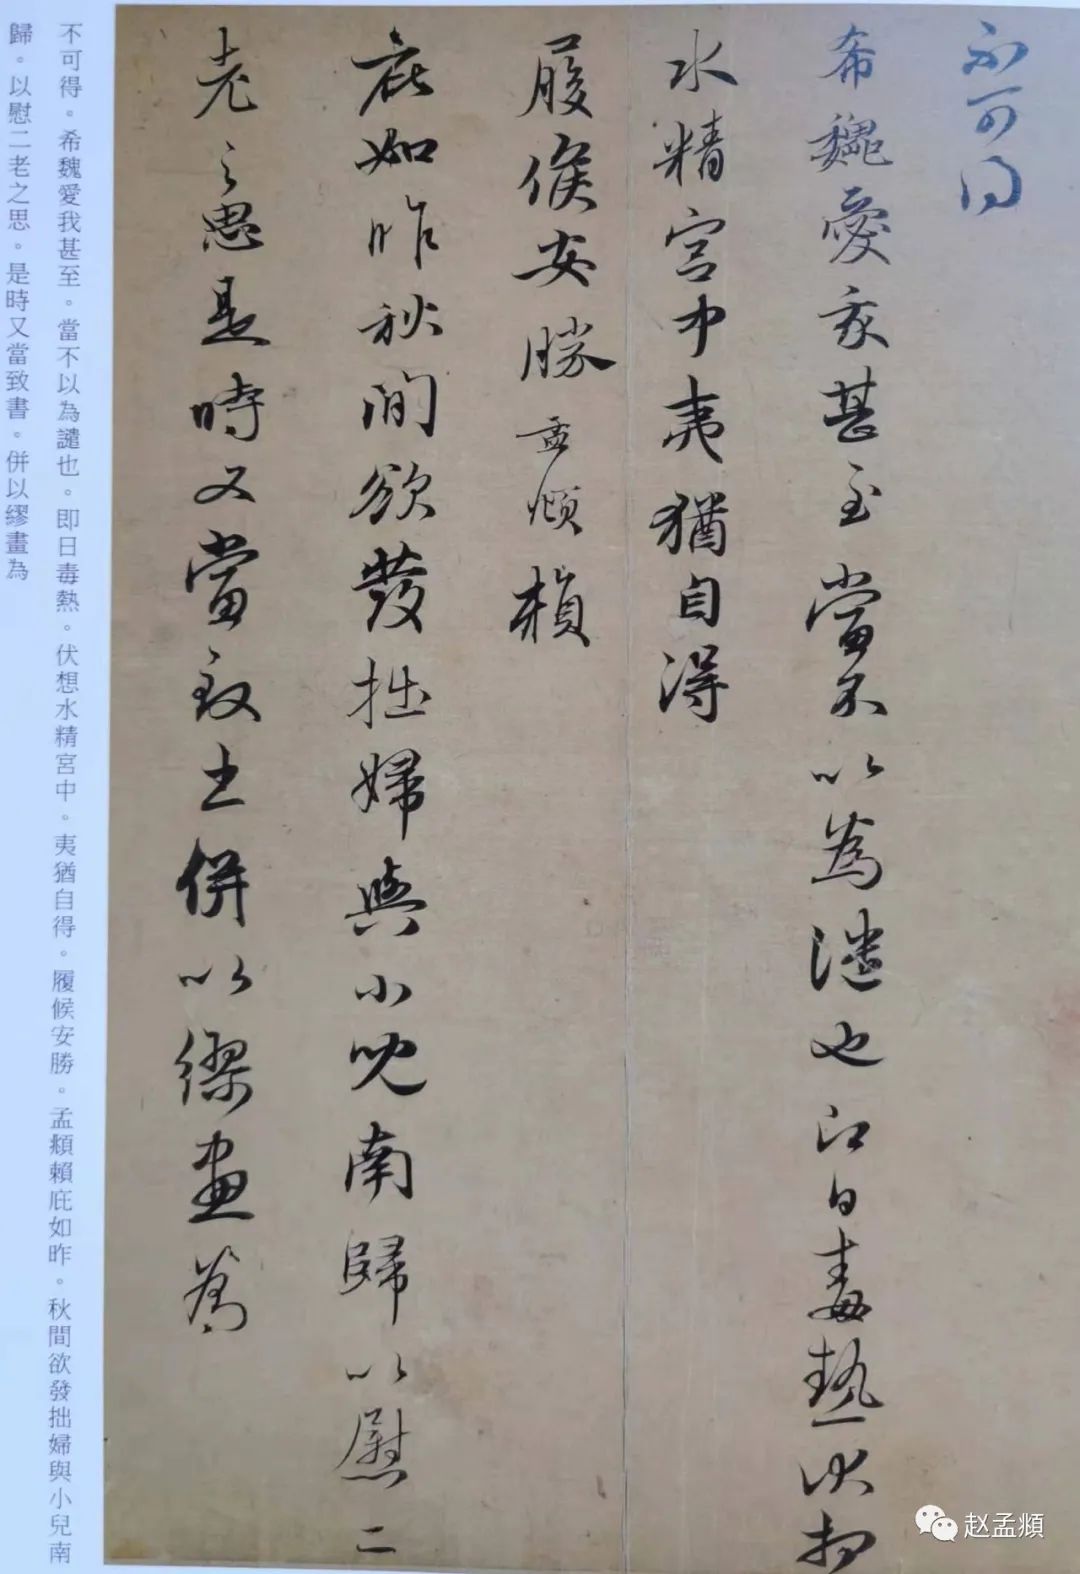 不可得
希魏愛我甚至當不以為譴也即日毒熱伏想
水精宮中夷猶自得
履候安勝孟頫賴
庇如昨秋間欲發拙婦與小兒南歸以慰二
老之思是時又當致書併以繆畫為
不可得。希魏愛我甚至。當不以為譴也。即日毒熱。伏想水精宮中。夷猶自得。履候安勝。孟頫賴庇如昨。秋間欲發拙婦與小兒南
歸。以慰二老之思。是時又當致書。併以繆畫為
赵孟頫